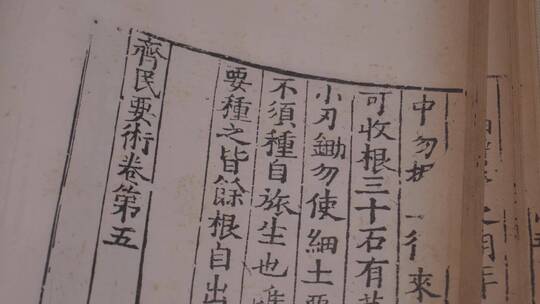 之明年
中勿 行來
可收根三十石有
小刃鋤勿使細土
不須種自旅生也
要種之皆餘根自出
齊民要術卷第五